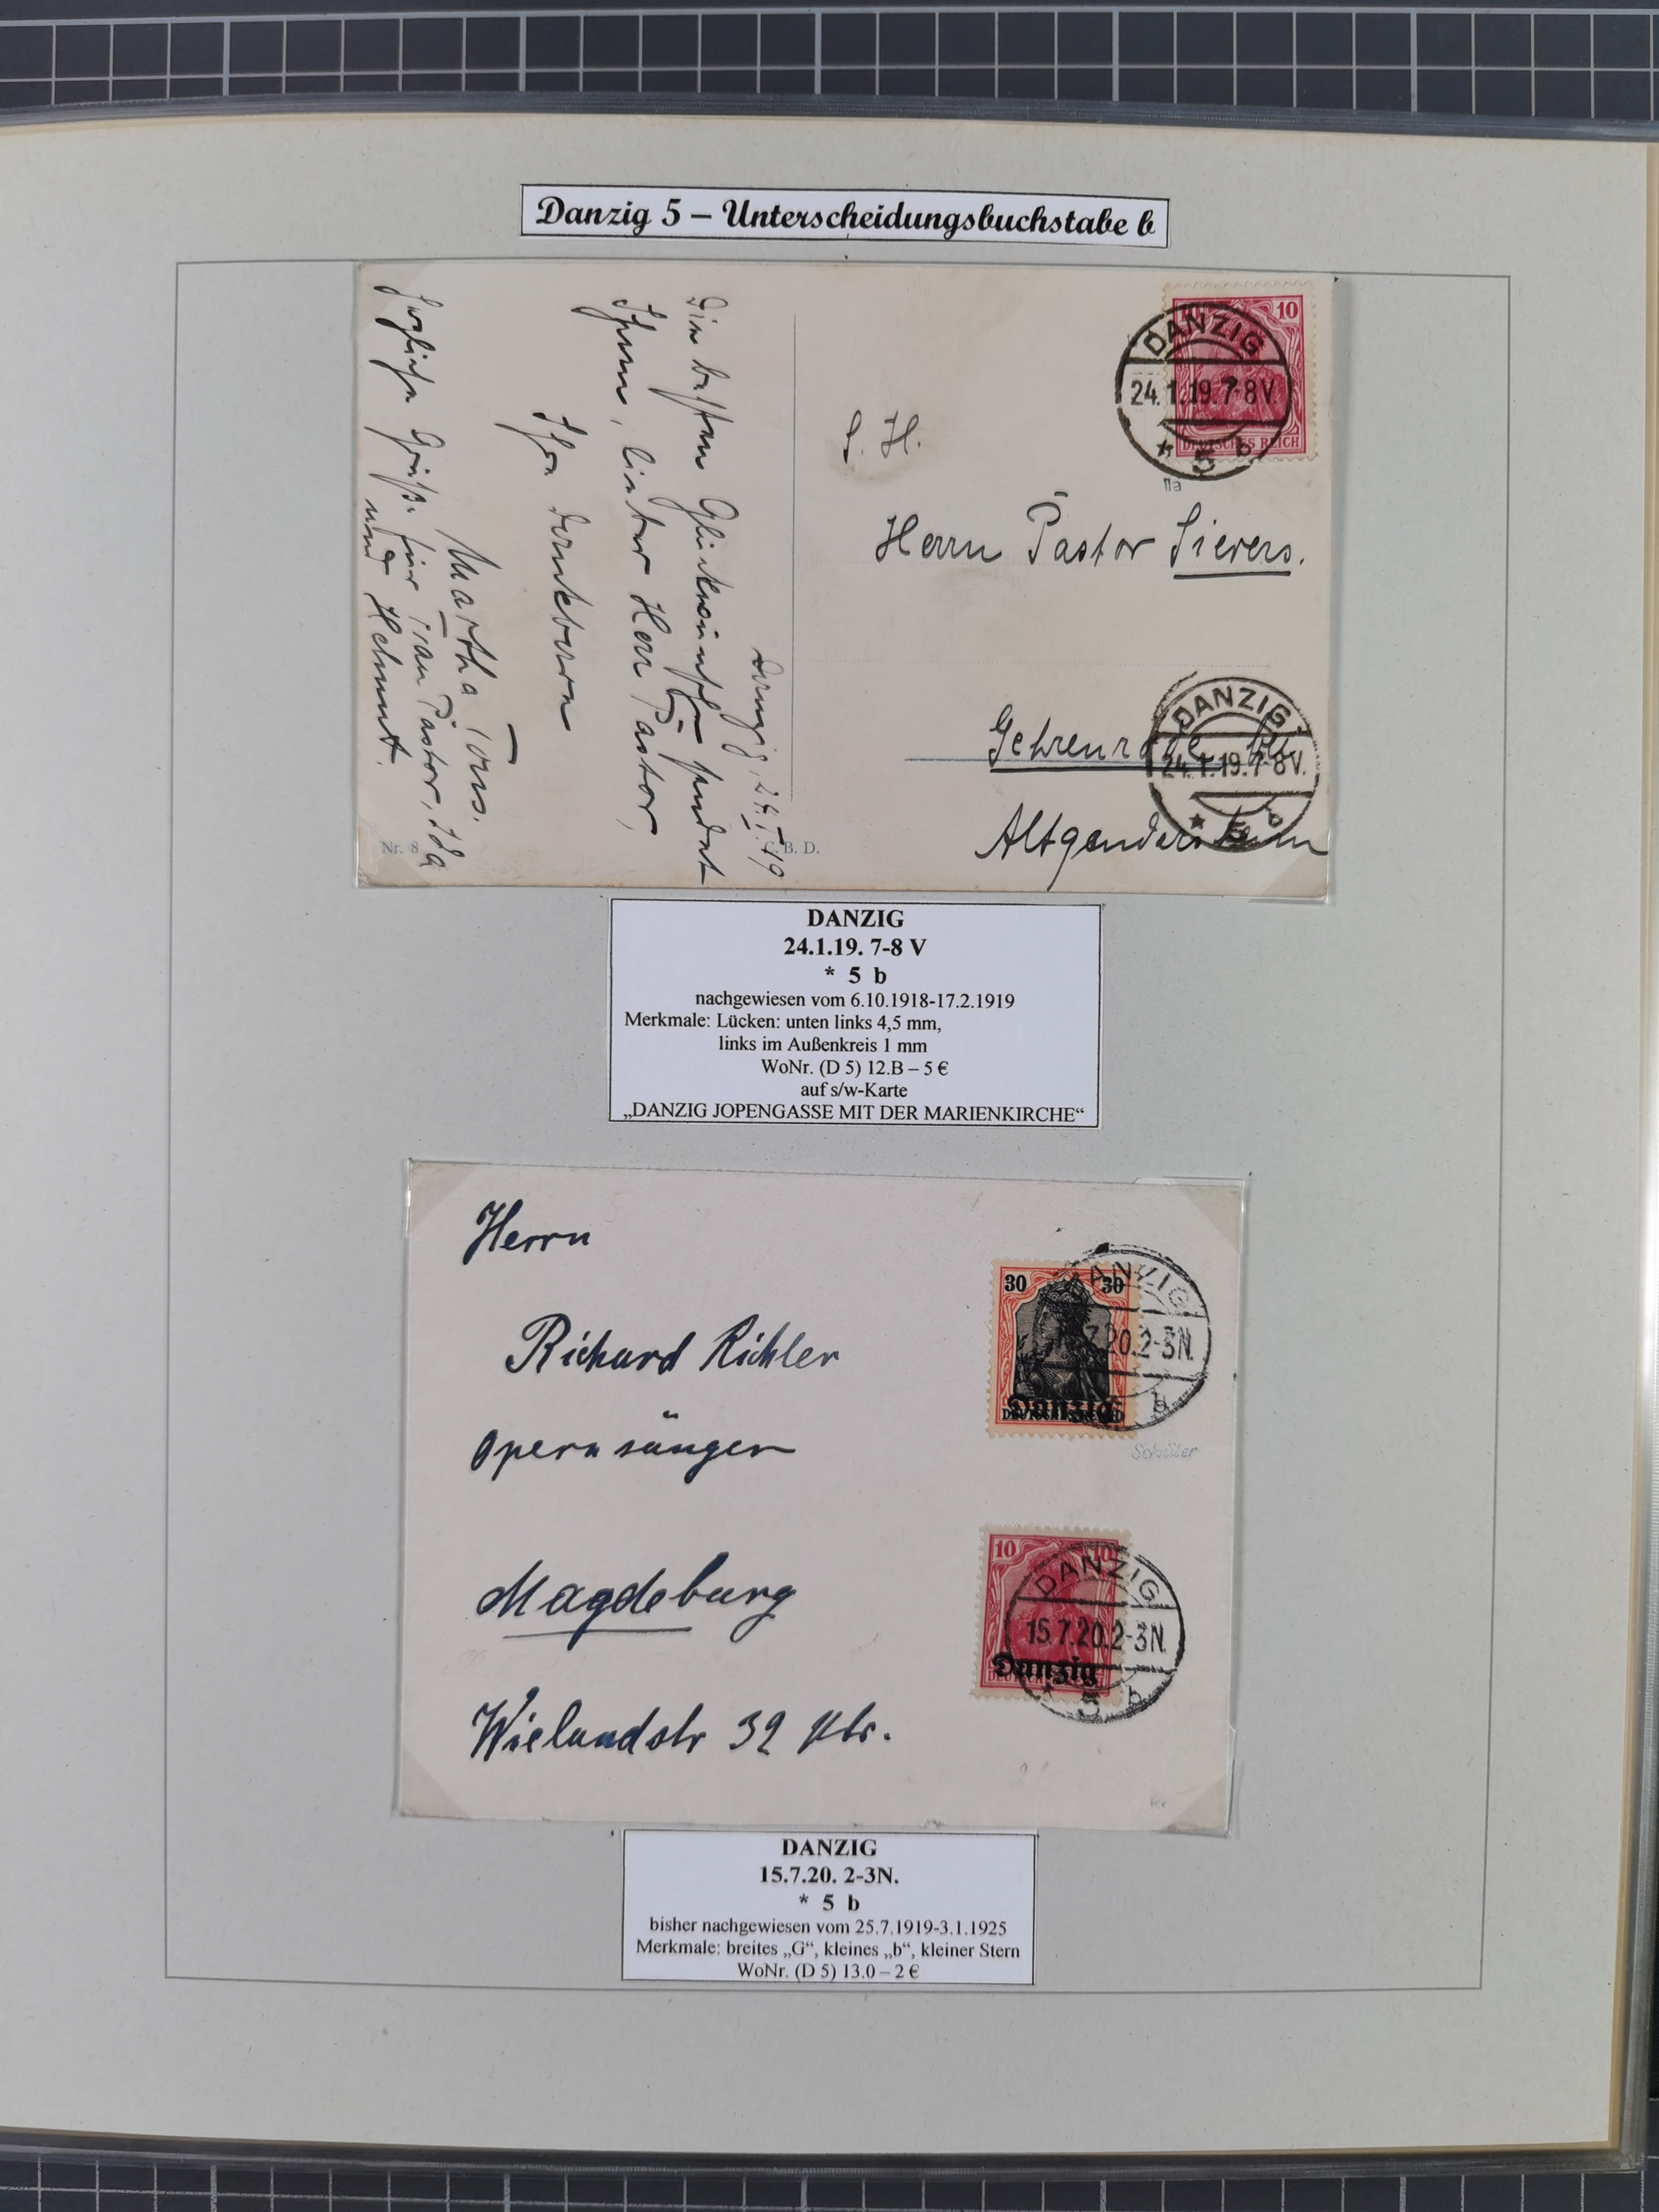 Danzig 5 – Unterscheidungsbuchstabe b
10
DEUTSCHES REICH
DANZIG
24.1.19.7-8V.
* 5 b
IIa
Herrn Pastor Sievers.
DANZIG
24.1.19.7-8V.
* 5 b
Altganders
Danzig, 24.I.19
Die besten Glückwünsche sendet
Ihnen, lieber Herr Pastor,
Ihre dankbare
Martha
Herzliche Grüße für Frau Pastor, Ida
und Helmut.
Nr. 8
B. D.
DANZIG
24.1.19. 7-8 V
* 5 b
nachgewiesen vom 6.10.1918-17.2.1919
Merkmale: Lücken: unten links 4,5 mm,
links im Außenkreis 1 mm
WoNr. (D 5) 12.B – 5 €
auf s/w-Karte
„DANZIG JOPENGASSE MIT DER MARIENKIRCHE“
Herrn
Richard Richler
Opernsänger
Magdeburg
Wielandstr 39 Ptr.
30 30
Danzig
DANZIG
7.20.2-3N.
b
10 10
Danzig
DANZIG
15.7.20.2-3N.
* 5 b
DANZIG
15.7.20. 2-3N.
* 5 b
bisher nachgewiesen vom 25.7.1919-3.1.1925
Merkmale: breites „G“, kleines „b“, kleiner Stern
WoNr. (D 5) 13.0 – 2 €